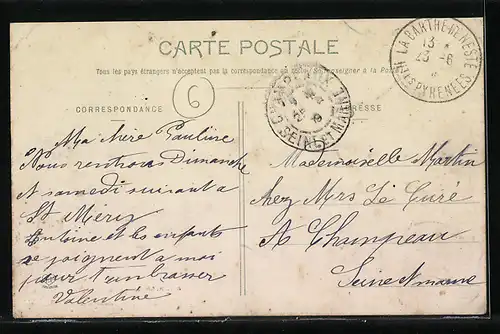 CARTE POSTALE
Tous les pays étrangers n'acceptent pas la correspondance au recto. (Se renseigner à la Poste)
CORRESPONDANCE
ADRESSE
6
LA BARTHE-DE-NESTE
13
23 -6
HTES PYRENEES
CHAMPEAUX
SEINE ET MARNE
Ma chère Pauline
Nous rentrons Dimanche
et samedi suivant a
St Méry
Antoine et les enfants
se joignent a moi
pour t'embrasser
Valentine
Mademoiselle Martin
chez Mrs Le Curé
A Champeau
Seine et marne